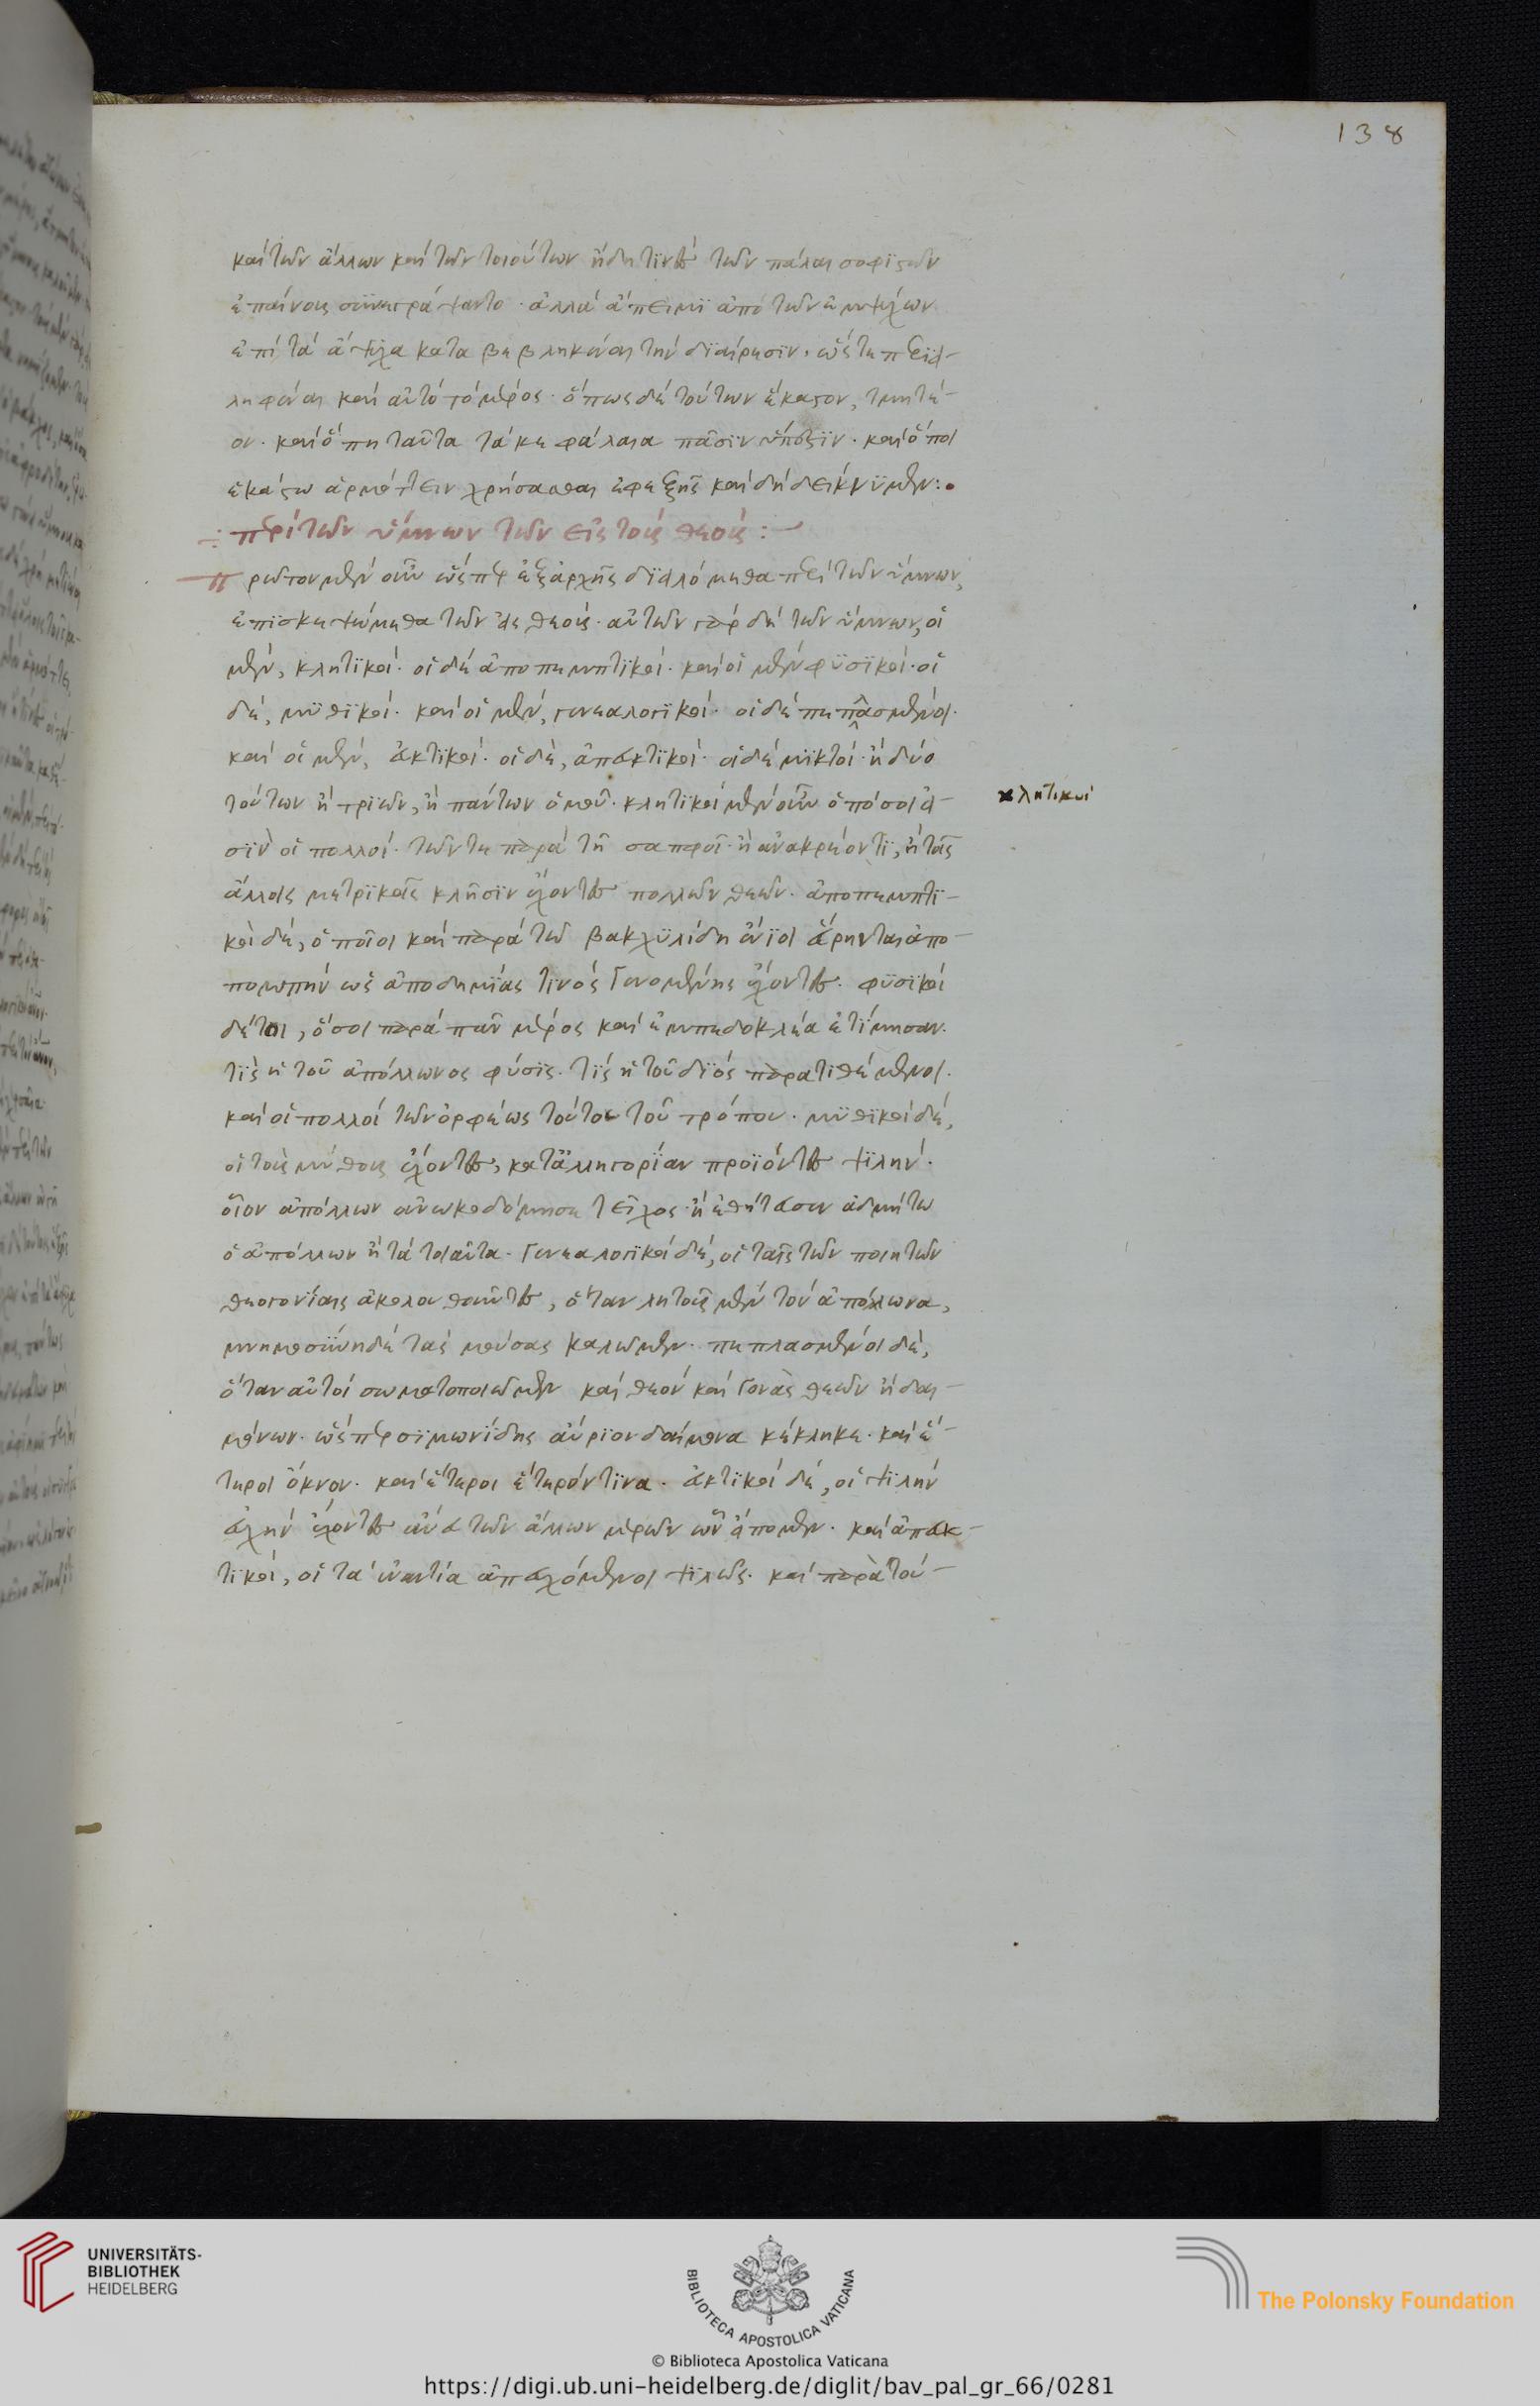 138
καὶ τῶν ἄλλων καὶ τῶν τοιούτων ἤδη τινὲς τῶν πάλαι σοφιστῶν
ἐπαίνους συνεγράψαντο· ἀλλὰ ἄπειμι ἀπὸ τῶν ἐμψύχων
ἐπὶ τὰ ἄψυχα καταβεβληκέναι τὴν διαίρεσιν· ὥστε περιει-
ληφέναι καὶ αὐτὸ τὸ μέρος· ὅπως δὲ τούτων ἕκαστον, τμητέ-
ον· καὶ ὅπη ταῦτα τὰ κεφάλαια πᾶσιν· καὶ ὅποι
ἑκάστω ἁρμόττειν χρήσασθαι ἐφεξῆς καὶ δὴ δείκνυμεν:
περὶ τῶν ὕμνων τῶν εἰς τοὺς θεούς:
πρῶτον μὲν οὖν ὥσπερ ἐξ ἀρχῆς διειλόμεθα περὶ τῶν ὕμνων,
ἐπισκεψώμεθα τῶν εἰς θεούς· αὐτῶν γὰρ δὴ τῶν ὕμνων, οἱ
μὲν, κλητικοί· οἱ δὲ ἀποπεμπτικοί· καὶ οἱ μὲν φυσικοί· οἱ
δὲ, μυθικοί· καὶ οἱ μὲν, γενεαλογικοί· οἱ δὲ πεπλασμένοι·
καὶ οἱ μὲν, εὐκτικοί· οἱ δὲ, ἀπευκτικοί· οἱ δὲ μικτοί· ἢ δύο
τούτων ἢ τριῶν, ἢ πάντων ὁμοῦ· κλητικοὶ μὲν οὖν ὁπόσοι εἰ-
κλητικοί
σὶν οἱ πολλοί· τῶν τε παρὰ τῆ σαπφοῖ· ἢ ἀνακρέοντι, ἢ τοῖς
ἄλλοις μετρικοῖς κλῆσιν ἔχοντες πολλῶν θεῶν· ἀποπεμπτι-
κοὶ δὲ, ὁποῖοι καὶ παρὰ τῶ βακχυλίδη ἔνιοι εὕρηνται ἀπο-
πομπὴν ὡς ἀποδημίας τινὸς γενομένης ἔχοντες· φυσικοὶ
δέτοι, ὅσοι παρὰ πᾶν μέρος καὶ ἐμπεδοκλέα ἐτίμησαν·
τίς ἡ τοῦ ἀπόλλωνος φύσις· τίς ἡ τοῦ διὸς παρατιθέμενοι·
καὶ οἱ πολλοὶ τῶν ὀρφέως τούτου τοῦ τρόπου· μυθικοὶ δὲ,
οἱ τοὺς μύθους ἔχοντες, κατἀλληγορίαν προϊόντες ψιλήν·
οἷον ἀπόλλων ἀνωκοδόμησε τεῖχος· ἢ ἐθήτευσεν ἀδμήτω
ὁ ἀπόλλων ἢ τὰ τοιαῦτα· γενεαλογικοὶ δὲ, οἱ ταῖς τῶν ποιητῶν
θεογονίαις ἀκολουθοῦντες, ὅταν λητοῦς μὲν τὸν ἀπόλλωνα,
μνημοσύνη δὲ τὰς μούσας καλῶμεν· πεπλασμένοι δὲ,
ὅταν αὐτοὶ σωματοποιῶμεν καὶ θεὸν καὶ γονὰς θεῶν ἢ δαι-
μόνων· ὥσπερ σιμωνίδης αὔριον δαίμονα κέκληκε· καὶ ἕ-
τεροι ὄκνον· καὶ ἕτεροι ἕτερόν τινα· εὐκτικοὶ δὲ, οἱ ψιλὴν
εὐχὴν ἔχοντες ἄνευ τῶν ἄλλων μερῶν ὧν εἴπομεν· καὶ ἀπευκ-
τικοὶ, οἱ τὰ ἐναντία ἀπευχόμενοι ψιλῶς· καὶ παρὰ τού-
UNIVERSITÄTS-
BIBLIOTHEK
HEIDELBERG
BIBLIOTECA APOSTOLICA VATICANA
The Polonsky Foundation
© Biblioteca Apostolica Vaticana
https://digi.ub.uni-heidelberg.de/diglit/bav_pal_gr_66/0281